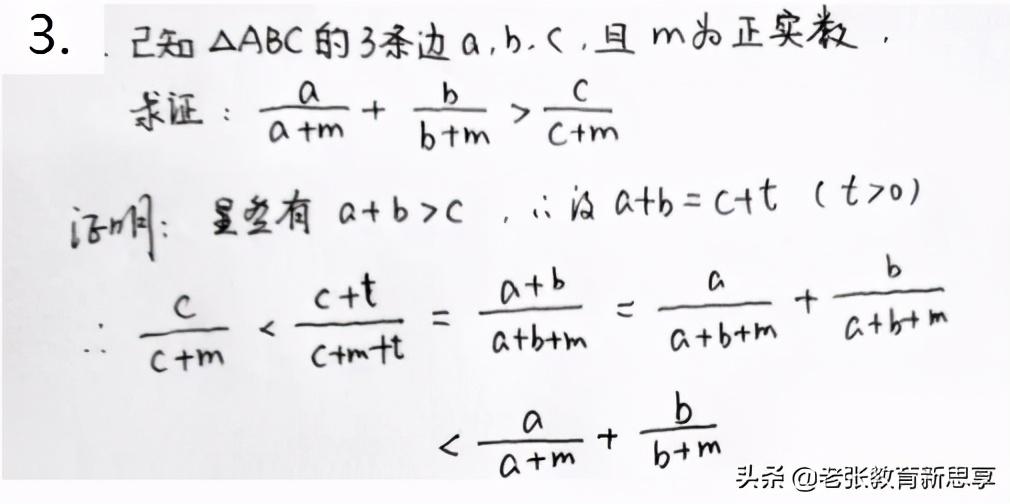 3. 已知 △ABC 的 3条边 a, b, c, 且 m为正实数,
求证: a/(a+m) + b/(b+m) > c/(c+m)
证明: 显然有 a+b>c, ∴设 a+b=c+t (t>0)
∴ c/(c+m) < (c+t)/(c+m+t) = (a+b)/(a+b+m) = a/(a+b+m) + b/(a+b+m)
< a/(a+m) + b/(b+m)
头条 @老张教育新思享